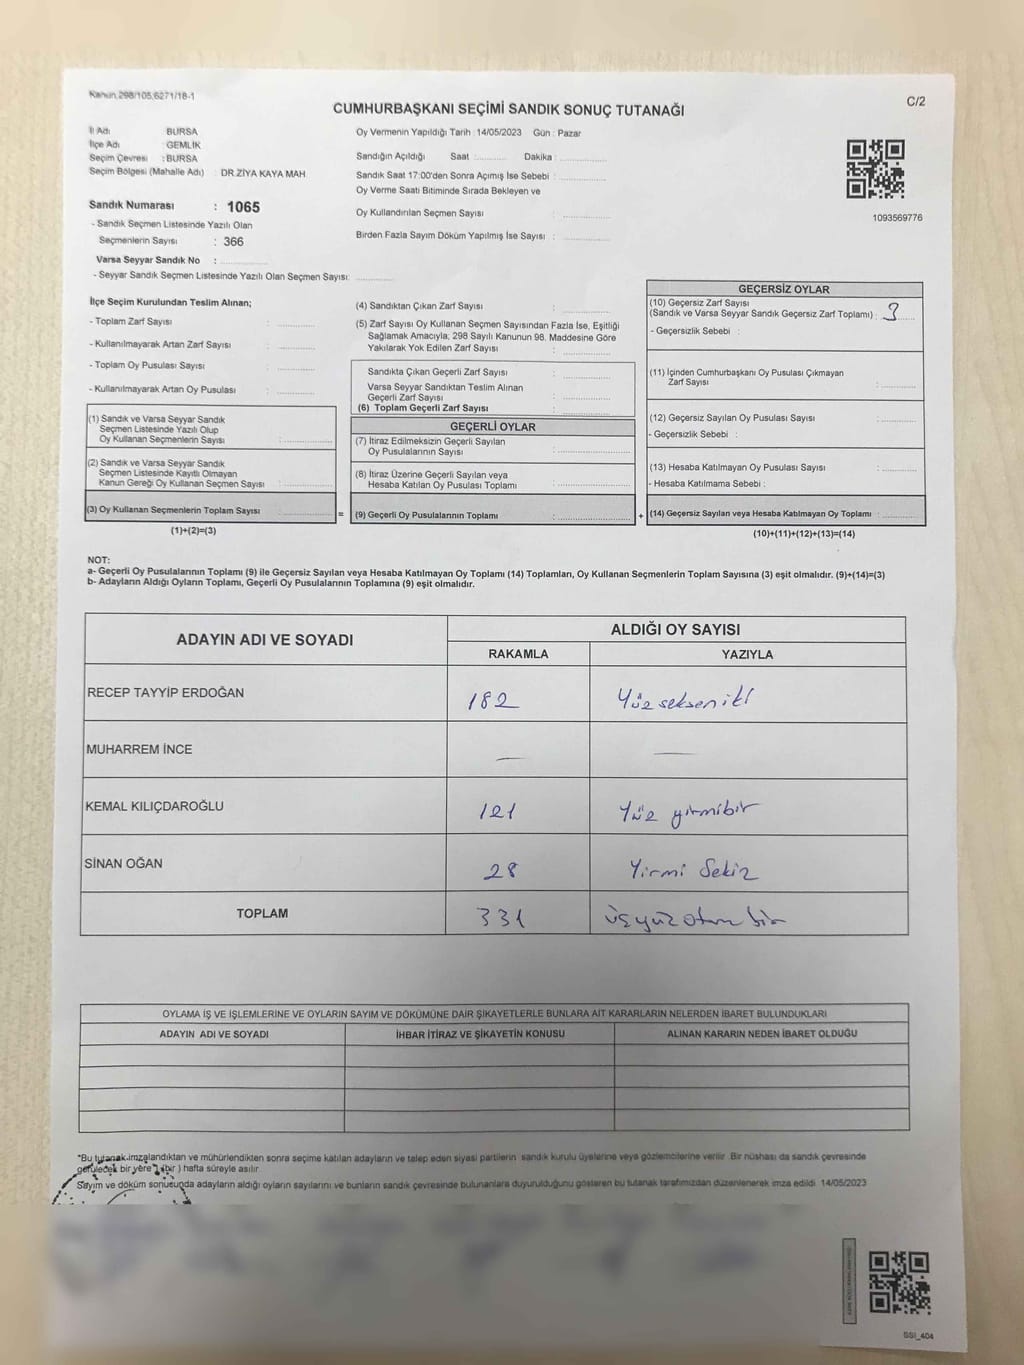 Kanun 298/105,6271/18-1
C/2
CUMHURBAŞKANI SEÇİMİ SANDIK SONUÇ TUTANAĞI
İl Adı BURSA
İlçe Adı : GEMLİK
Seçim Çevresi : BURSA
Seçim Bölgesi (Mahalle Adı) : DR.ZİYA KAYA MAH.
Sandık Numarası : 1065
- Sandık Seçmen Listesinde Yazılı Olan
Seçmenlerin Sayısı : 366
Varsa Seyyar Sandık No :
- Seyyar Sandık Seçmen Listesinde Yazılı Olan Seçmen Sayısı:
Oy Vermenin Yapıldığı Tarih : 14/05/2023 Gün : Pazar
Sandığın Açıldığı Saat : Dakika :
Sandık Saat 17:00'den Sonra Açımış İse Sebebi :
Oy Verme Saati Bitiminde Sırada Bekleyen ve
Oy Kullandırılan Seçmen Sayısı :
Birden Fazla Sayım Döküm Yapılmış İse Sayısı :
1093569776
İlçe Seçim Kurulundan Teslim Alınan;
- Toplam Zarf Sayısı :
- Kullanılmayarak Artan Zarf Sayısı :
- Toplam Oy Pusulası Sayısı :
- Kullanılmayarak Artan Oy Pusulası :
(1) Sandık ve Varsa Seyyar Sandık
Seçmen Listesinde Yazılı Olup
Oy Kullanan Seçmenlerin Sayısı :
(2) Sandık ve Varsa Seyyar Sandık
Seçmen Listesinde Kayıtlı Olmayan
Kanun Gereği Oy Kullanan Seçmen Sayısı :
(3) Oy Kullanan Seçmenlerin Toplam Sayısı :
(1)+(2)=(3)
(4) Sandıktan Çıkan Zarf Sayısı :
(5) Zarf Sayısı Oy Kullanan Seçmen Sayısından Fazla İse, Eşitliği
Sağlamak Amacıyla; 298 Sayılı Kanunun 98. Maddesine Göre
Yakılarak Yok Edilen Zarf Sayısı :
Sandıkta Çıkan Geçerli Zarf Sayısı :
Varsa Seyyar Sandıktan Teslim Alınan
Geçerli Zarf Sayısı :
(6) Toplam Geçerli Zarf Sayısı :
GEÇERLİ OYLAR
(7) İtiraz Edilmeksizin Geçerli Sayılan
Oy Pusulalarının Sayısı :
(8) İtiraz Üzerine Geçerli Sayılan veya
Hesaba Katılan Oy Pusulası Toplamı :
= (9) Geçerli Oy Pusulalarının Toplamı : +
GEÇERSİZ OYLAR
(10) Geçersiz Zarf Sayısı
(Sandık ve Varsa Seyyar Sandık Geçersiz Zarf Toplamı) : 3
- Geçersizlik Sebebi :
(11) İçinden Cumhurbaşkanı Oy Pusulası Çıkmayan
Zarf Sayısı :
(12) Geçersiz Sayılan Oy Pusulası Sayısı :
- Geçersizlik Sebebi :
(13) Hesaba Katılmayan Oy Pusulası Sayısı :
- Hesaba Katılmama Sebebi :
(14) Geçersiz Sayılan veya Hesaba Katılmayan Oy Toplamı :
(10)+(11)+(12)+(13)=(14)
NOT:
a- Geçerli Oy Pusulalarının Toplamı (9) ile Geçersiz Sayılan veya Hesaba Katılmayan Oy Toplamı (14) Toplamları, Oy Kullanan Seçmenlerin Toplam Sayısına (3) eşit olmalıdır. (9)+(14)=(3)
b- Adayların Aldığı Oyların Toplamı, Geçerli Oy Pusulalarının Toplamına (9) eşit olmalıdır.
ADAYIN ADI VE SOYADI ALDIĞI OY SAYISI
RAKAMLA YAZIYLA
RECEP TAYYİP ERDOĞAN 182 Yüz seksen iki
MUHARREM İNCE — —
KEMAL KILIÇDAROĞLU 121 Yüz yirmibir
SİNAN OĞAN 28 Yirmi Sekiz
TOPLAM 331 üçyüz otuz bir
OYLAMA İŞ VE İŞLEMLERİNE VE OYLARIN SAYIM VE DÖKÜMÜNE DAİR ŞİKAYETLERLE BUNLARA AİT KARARLARIN NELERDEN İBARET BULUNDUKLARI
ADAYIN ADI VE SOYADI İHBAR İTİRAZ VE ŞİKAYETİN KONUSU ALINAN KARARIN NEDEN İBARET OLDUĞU
*Bu tutanak imzalandıktan ve mühürlendikten sonra seçime katılan adayların ve talep eden siyasi partilerin sandık kurulu üyelerine veya gözlemcilerine verilir. Bir nüshası da sandık çevresinde
görülecek bir yere 1 (bir ) hafta süreyle asılır.
Sayım ve döküm sonucunda adayların aldığı oyların sayılarını ve bunların sandık çevresinde bulunanlara duyurulduğunu gösteren bu tutanak tarafımızdan düzenlenerek imza edildi. 14/05/2023
SSI_404